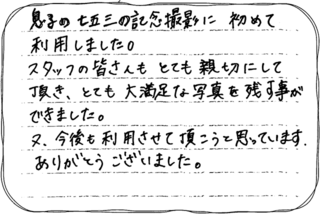 息子の七五三の記念撮影に 初めて
利用しました。
スタッフの皆さんも とても 親切にして
頂き、とても 大満足な写真を 残す事が
できました。
又、今後も 利用させて 頂こうと思っています.
ありがとう ございました。